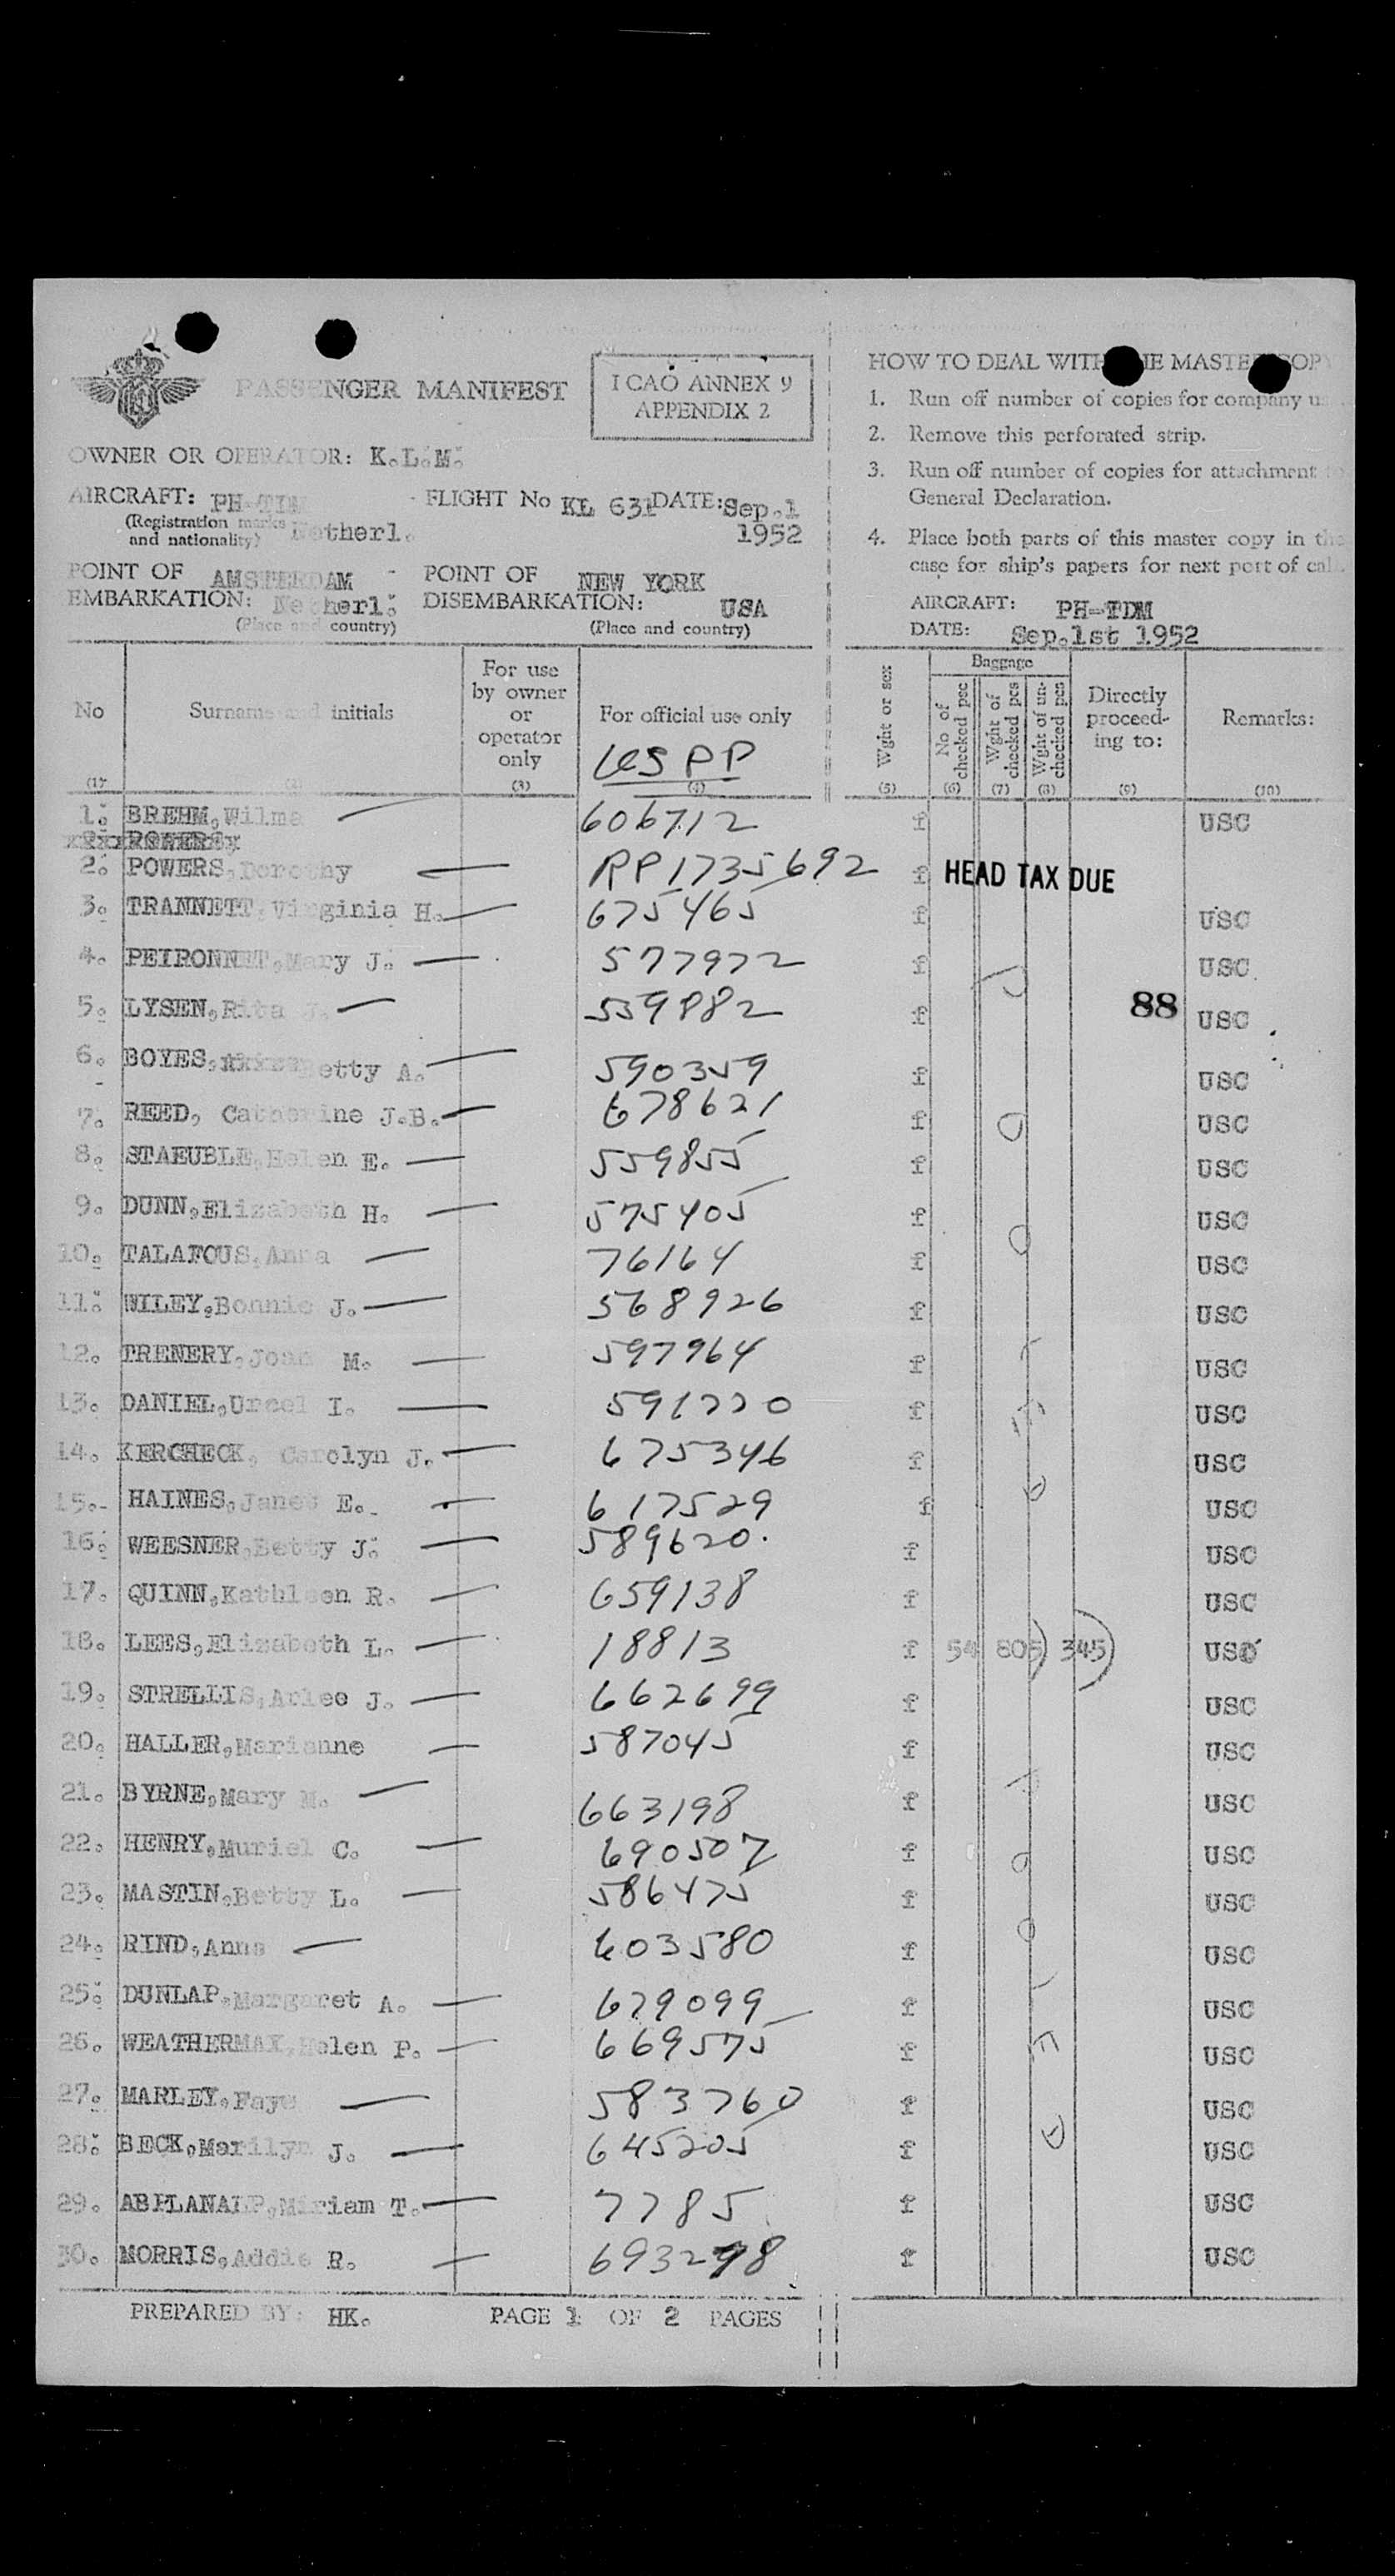 PASSENGER MANIFEST
ICAO ANNEX 9
APPENDIX 2
OWNER OR OPERATOR: K.L.M.
AIRCRAFT: PH-TDM
(Registration marks and nationality) Netherl.
FLIGHT No KL 631 DATE: Sep.1
1952
POINT OF EMBARKATION: AMSTERDAM
Netherl.
(Place and country)
POINT OF DISEMBARKATION: NEW YORK
USA
(Place and country)
HOW TO DEAL WITH THE MASTER COPY
1. Run off number of copies for company
2. Remove this perforated strip.
3. Run off number of copies for attachment
General Declaration.
4. Place both parts of this master copy in the
case for ship's papers for next port of
AIRCRAFT: PH-TDM
DATE: Sep.1st 1952
No (1) Surname and initials (2) For use by owner or operator only (3) For official use only (4) Wght or sex (5) Baggage No of checked psc (6) Wght of checked pcs (7) Wght of un-checked pcs (8) Directly proceed-ing to: (9) Remarks: (10)
US PP
1. BREHM, Wilma 606712 f USC
POWERS
2. POWERS, Dorothy RP1735692 f HEAD TAX DUE
3. TRANNETT, Virginia H. 675465 f USC
4. PEIRONNET, Mary J. 577972 f USC
5. LYSEN, Rita J. 539882 f 88 USC
6. BOYES, Betty A. 590359 f USC
7. REED, Catherine J.B. 678621 f USC
8. STAEUBLE, Helen E. 559855 f USC
9. DUNN, Elizabeth H. 575405 f USC
10. TALAFOUS, Anna 76164 f USC
11. WILEY, Bonnie J. 568926 f USC
12. TRENERY, Joan M. 597964 f USC
13. DANIEL, Ursel I. 591770 f USC
14. KERCHECK, Carolyn J. 675346 f USC
15. HAINES, Janet E. 617529 f USC
16. WEESNER, Betty J. 589620. f USC
17. QUINN, Kathleen R. 659138 f USC
18. LEES, Elizabeth L. 18813 f 54 805) 345) USC
19. STRELLIS, Arlee J. 662699 f USC
20. HALLER, Marianne 587045 f USC
21. BYRNE, Mary M. 663198 f USC
22. HENRY, Muriel C. 690507 f USC
23. MASTIN, Betty L. 586475 f USC
24. RIND, Anna 603580 f USC
25. DUNLAP, Margaret A. 679099 f USC
26. WEATHERMAX, Helen P. 669575 f USC
27. MARLEY, Faye 583760 f USC
28. BECK, Marilyn J. 645205 f USC
29. ABPLANALP, Miriam T. 7785 f USC
30. MORRIS, Addie R. 693298 f USC
PREPARED BY: HK. PAGE 1 OF 2 PAGES